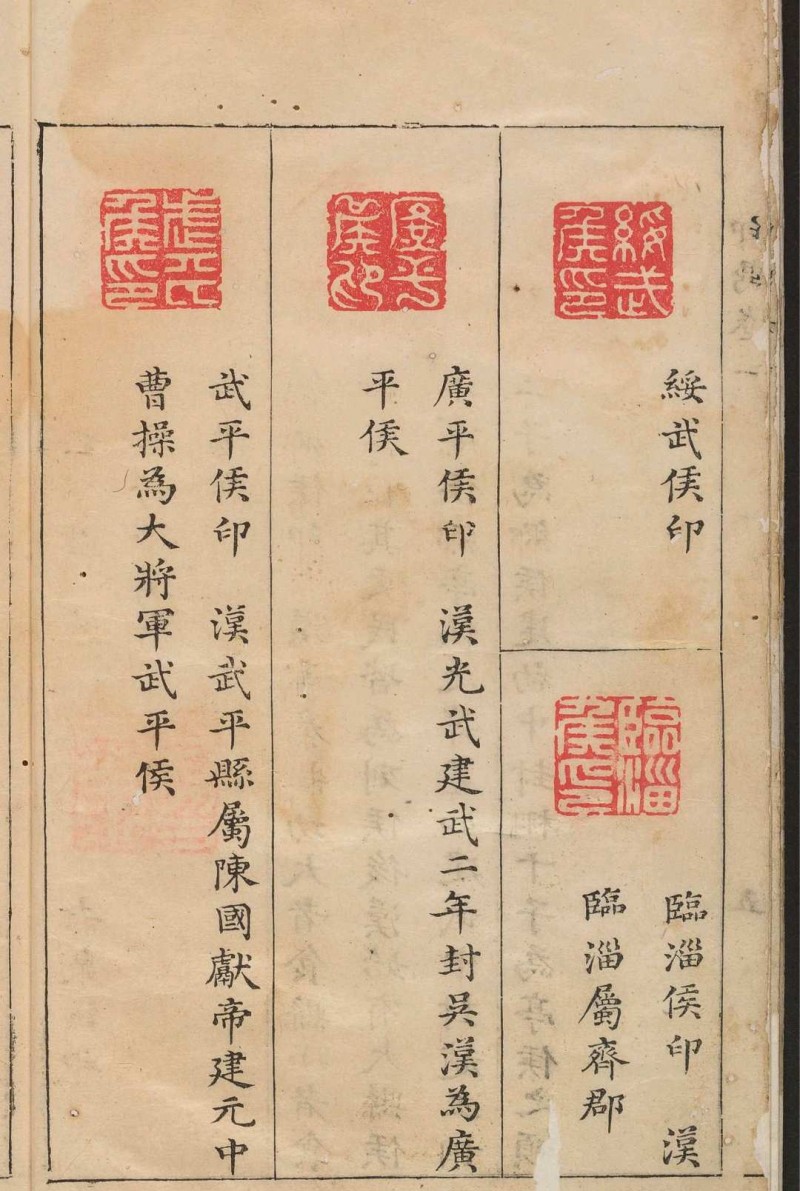 綏武侯印
綏武侯印
臨淄侯印
臨淄侯印 漢
臨淄屬齊郡
廣平侯印
廣平侯印 漢光武建武二年封吳漢為廣
平侯
武平侯印
武平侯印 漢武平縣屬陳國獻帝建元中
曹操為大將軍武平侯